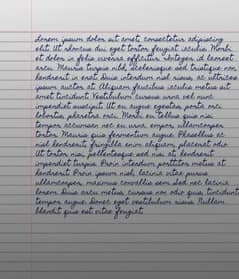 dorem ipsum dolor sit amet, consectetur adipiscing
elit. Ut rhoncus dui eget tortor feugiat iaculis. Morbi
et dolor in felis viverra efficitur. Integer id laoreet
arcu. Mauris turpis nibh, scelerisque sed tristique non,
hendrerit in erat. Duis interdum nisl risus, ac ultrices
ipsum auctor at. Aliquam faucibus iaculis metus sit
amet tincidunt. Vestibulum cursus urna vel nunc
imperdiet suscipit. Ut eu augue egestas, porta arcu
lobortis, pharetra orci. Morbi eu tellus quis nisi
tempor accumsan nec eu urna. empor, ullamcorper
tortor. Mauris quis fermentum augue. Phasellus ac
nisl hendrerit, fringilla enim aliquam, placerat odio.
Ut tortor nisi, pellentesque sed nisi at, hendrerit
imperdiet turpis. Proin interdum porttitor metus at
hendrerit. Proin ipsum nisl, lacinia vitae purus
ullamcorper, maximus convallis sem. Sed nec lacinia
lorem. Duis arcu metus, cursus non odio quis, tincidunt
tempor augue. Donec eget vestibulum risus. Nullam
blandit quis est vitae feugiat